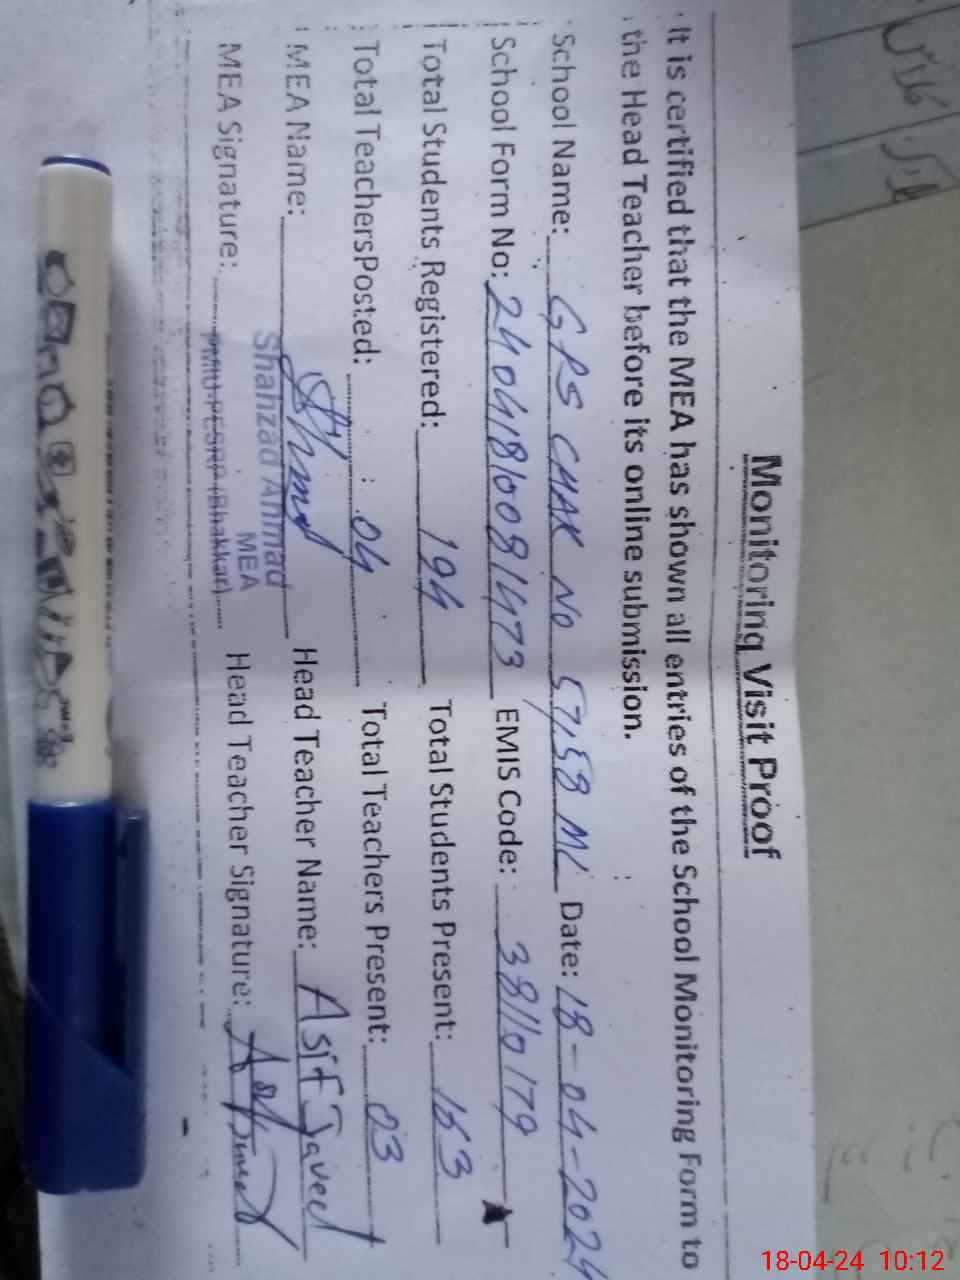 Monitoring Visit Proof
It is certified that the MEA has shown all entries of the School Monitoring Form to
the Head Teacher before its online submission.
School Name: GPS CHAK No 57,58 ML Date: 18-04-2024
School Form No: 24041810081473 EMIS Code: 38110179
Total Students Registered: 194 Total Students Present: 153
Total TeachersPosted: 04 Total Teachers Present: 03
MEA Name: Head Teacher Name: Asif Javed
Shahzad Ahmad
MEA
MEA Signature: PMIU-PESRP (Bhakkar) Head Teacher Signature:
18-04-24 10:12